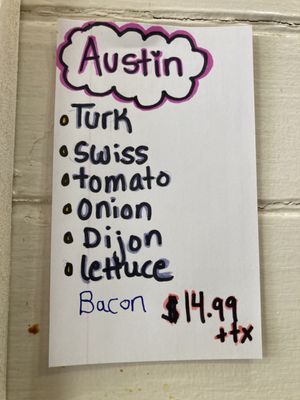 Austin
Turk
Swiss
tomato
Onion
Dijon
lettuce
Bacon $14.99
+tx